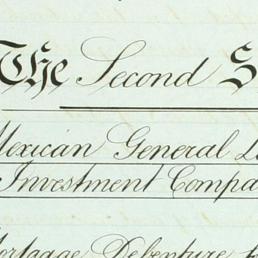 The Second S
Mexican General L
Investment Compa
Mortgage Debenture